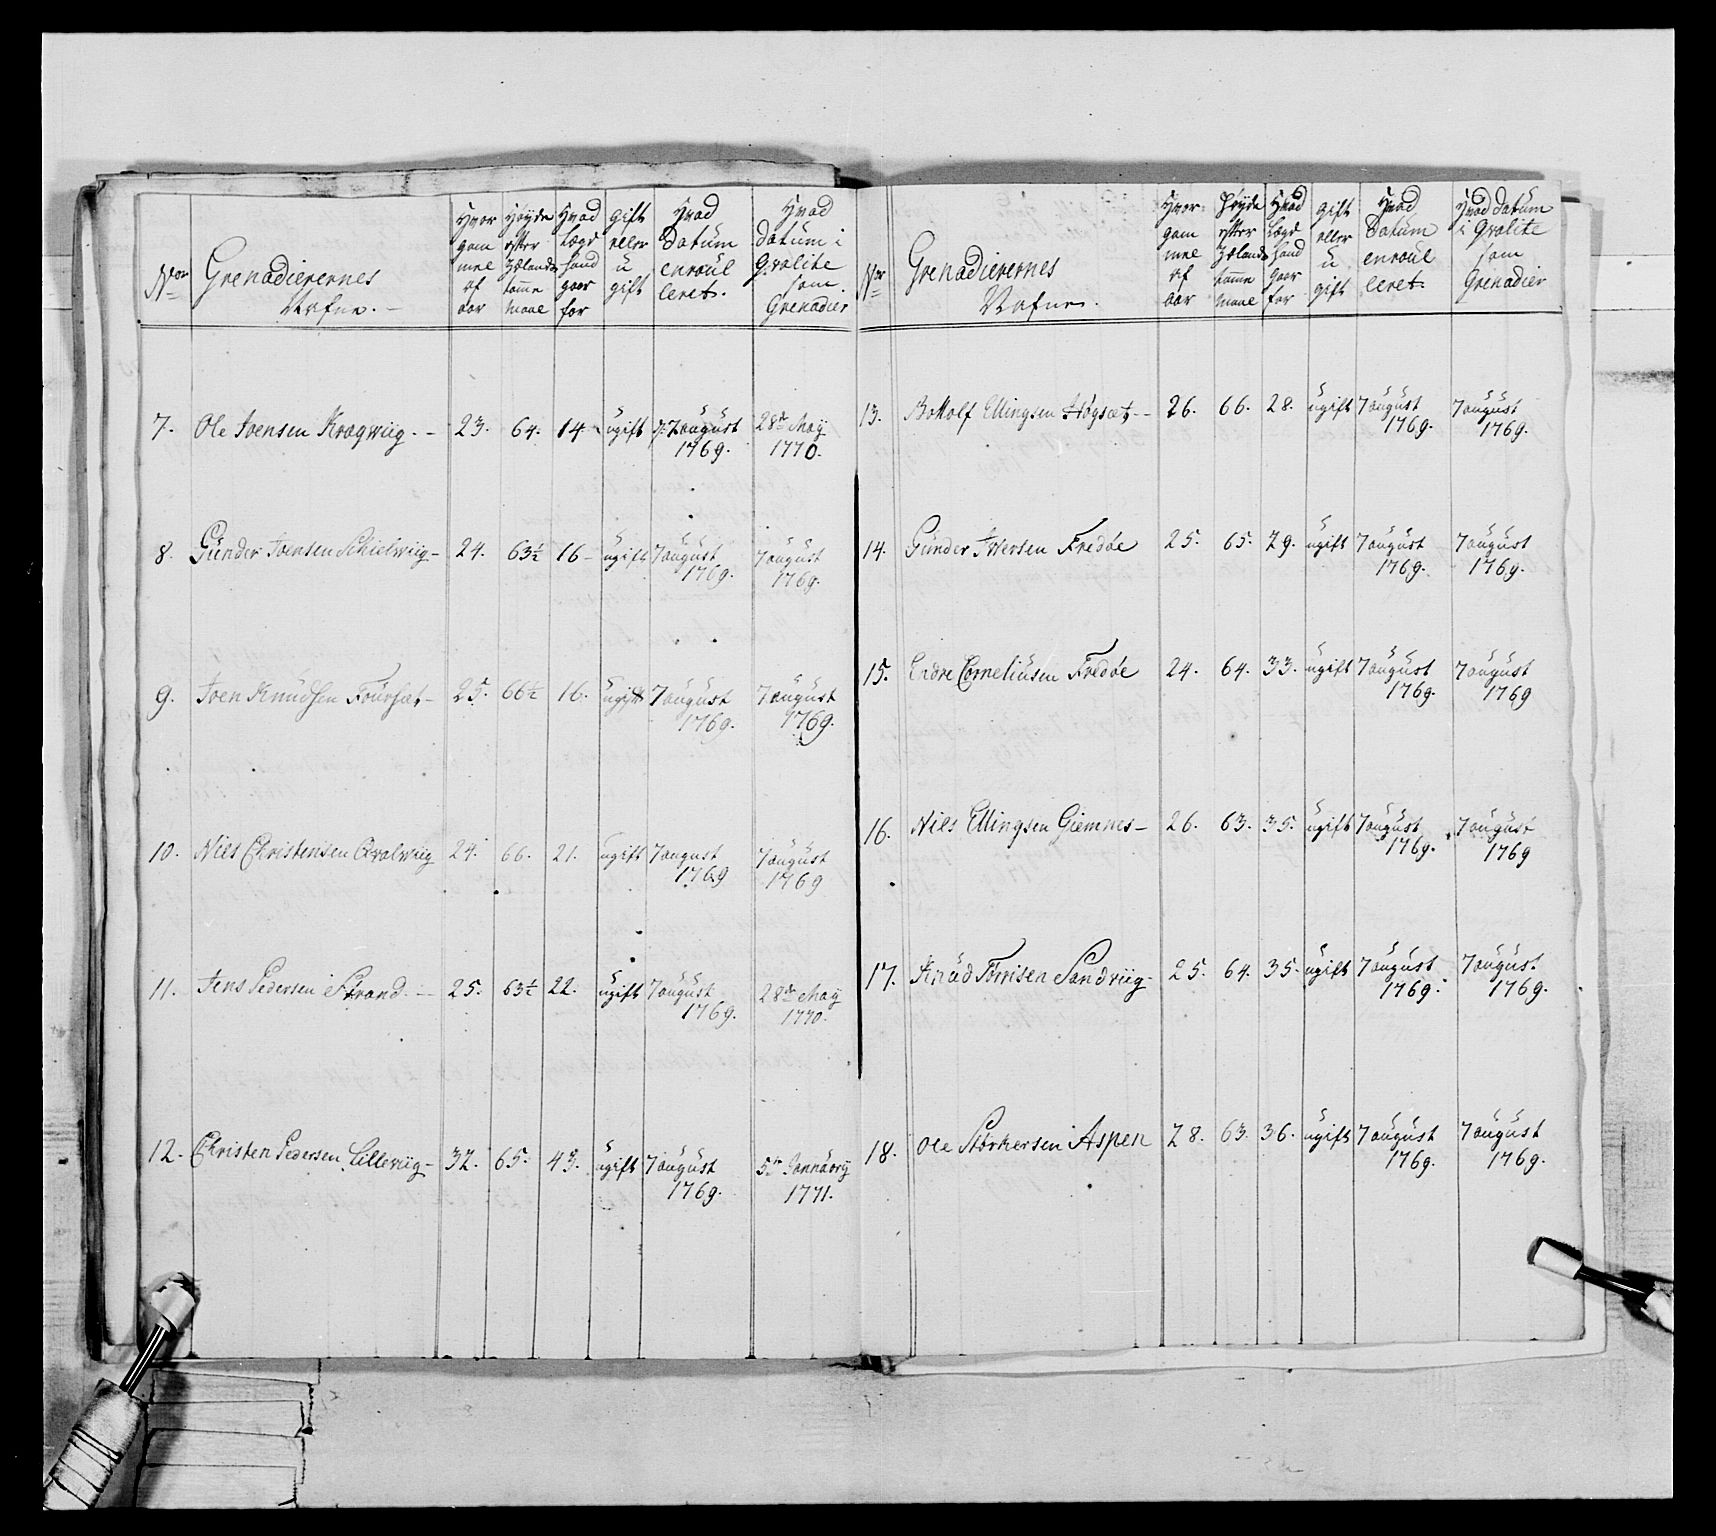 Nor Grenadierernes Nafne. Hvor gam mel af aar Høyde efter Zelands tomme maal Hvad Lægd hand gaar for gift eller u gift Hvad Datum enroul leret. Hvad datum i Qvalite som Grenadier
7. Ole Joensen Kragwiig. - 23. 64. 14 ugift 7 august 1769. 28de May 1770.
8. Gunder Joensen Schielwiig - 24. 63½ 16 - ugift 7 august 1769. 7 august 1769.
9. Joen Knudsen Foursæt - 25. 66½ 16. ugift 7 august 1769. 7 august 1769.
10. Niels Christensen Qvalwiig 24. 66. 21. ugift 7 august 1769 7 august 1769
11. Jens Pedersen Strand. - 25. 63½ 22. ugift 7 august 1769. 28de May 1770.
12. Christen Pedersen Lilleviig - 32. 65. 43. ugift 7 august 1769. 5te Januarij 1771.
Nor Grenadierernes Nafne. Hvor gam mel af aar Høyde efter Zelands tomme maal Hvad Lægd hand gaar for gift eller u gift Hvad Datum enroul leret. Hvad datum i Qvalite som Grenadier
13. Bottolf Ellingsen Høgsæt - 26. 66. 28. ugift 7 august 1769. 7 august 1769.
14. Gunder Iversen Fredøe 25. 65. 29. ugift 7 august 1769. 7 august 1769.
15. Endre Corneliusen Fredøe 24. 64. 33. ugift 7 august 1769. 7 august 1769
16. Niels Ellingsen Giemnes - 26. 63. 35. ugift 7 august 1769. 7 august 1769
17. Knud Torrisen Sandviig - 25. 64. 35. ugift 7 august 1769. 7 august 1769.
18. Ole Størkersen Aspen 28. 63. 36. ugift 7 august 1769. 7 august 1769.